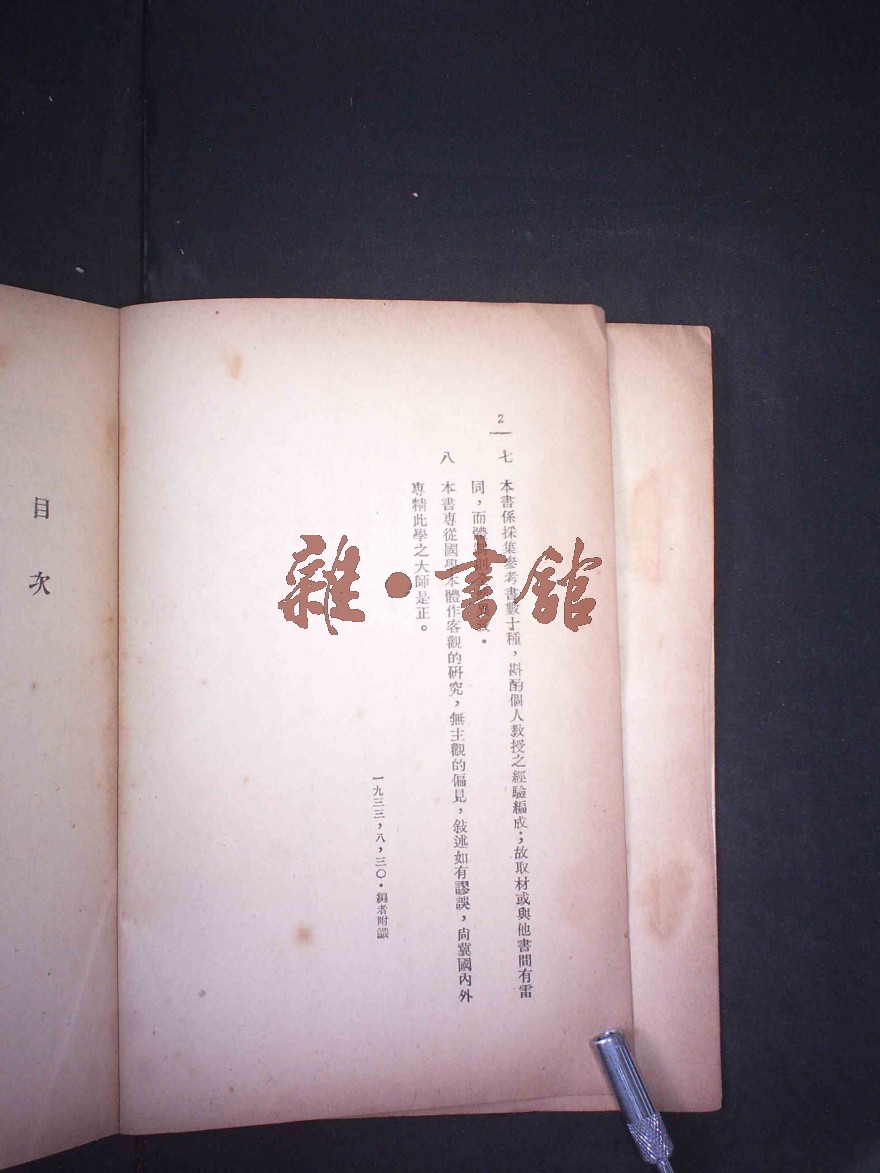 2
七　本書係採集參考書數十種，斟酌個人教授之經驗編成；故取材或與他書間有雷
同，而體
八　本書專從國學本體作客觀的研究，無主觀的偏見，敍述如有謬誤，尚冀國內外
專精此學之大師是正。
一九三三，八，三〇·編者附識
目次
雜·書館